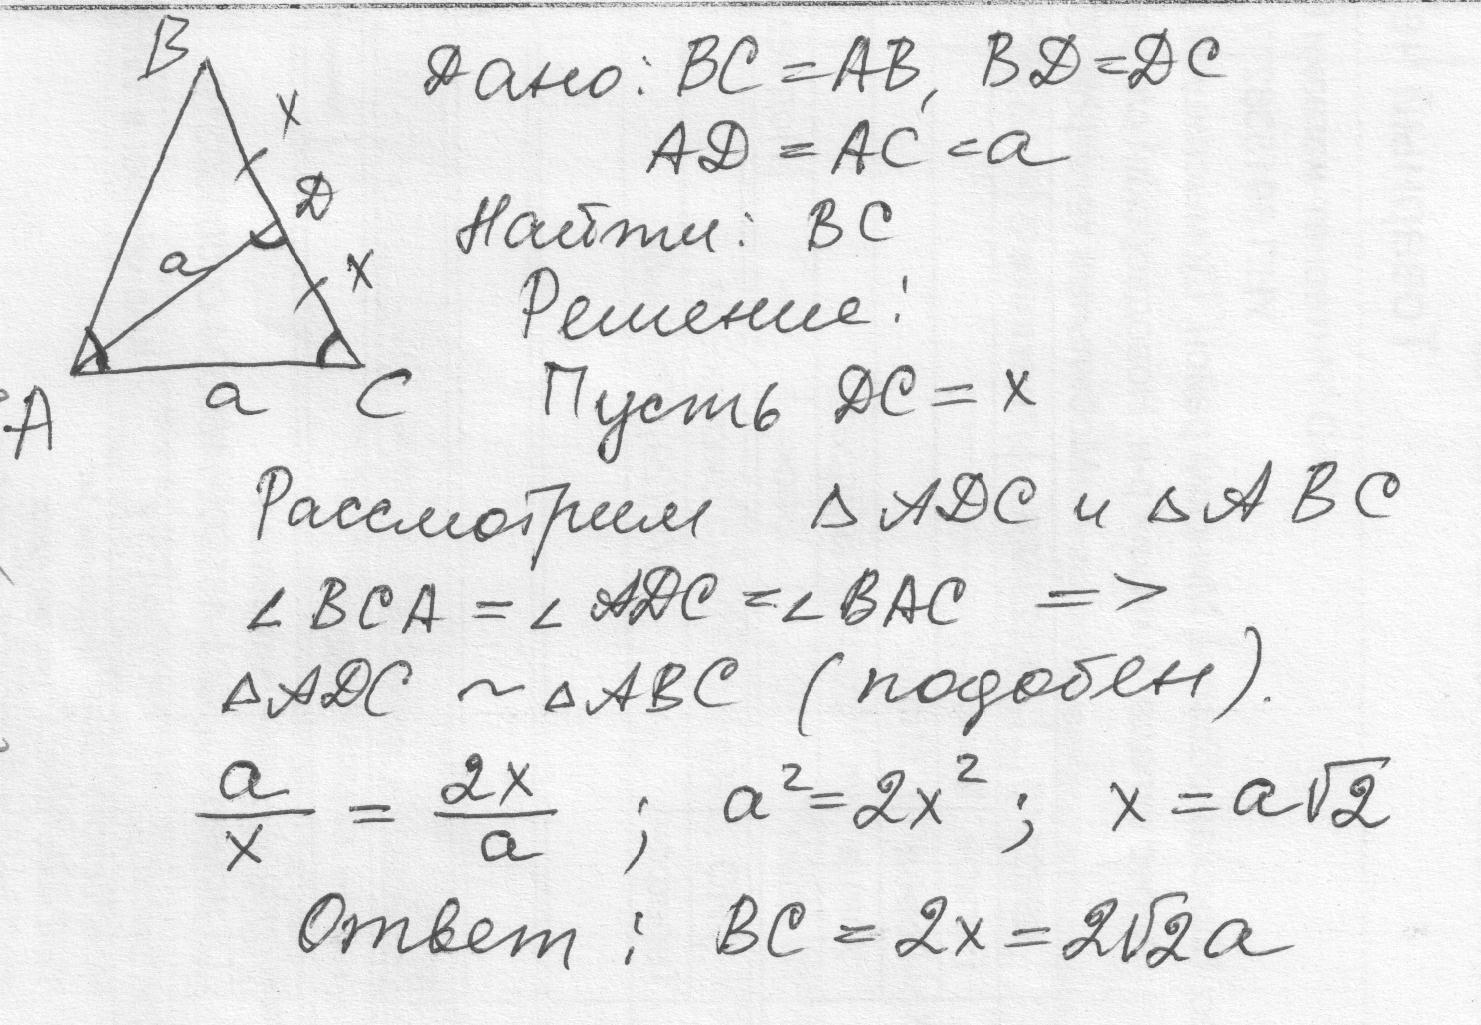 B
Дано: BC = AB, BD = DC
x
AD = AC = a
D
Найти: BC
a
x
Решение:
A
a
C
Пусть DC = x
Рассмотрим △ADC и △ABC
∠BCA = ∠ADC = ∠BAC =>
△ADC ~ △ABC (подобен).
a/x = 2x/a ; a² = 2x² ; x = a√2
Ответ: BC = 2x = 2√2a